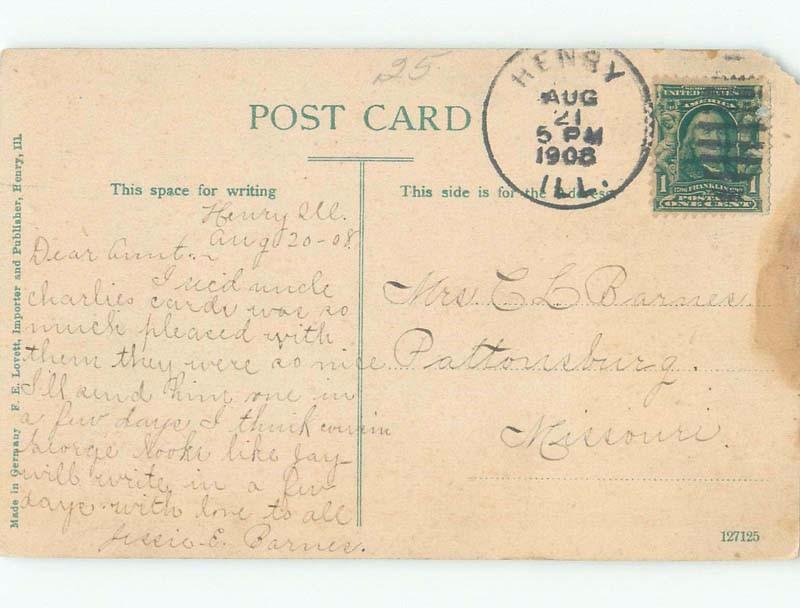 25
HENRY
AUG
21
5 PM
1908
ILL.
UNITED STATES
AMERICA
1 FRANKLIN 1
POSTAGE
ONE CENT
POST CARD
This space for writing
This side is for the Address
Henry Ill.
Aug 20-08
Dear Aunt
I rec'd uncle
charlies cards was so
much pleased with
them they were so nice
I'll send him one in
a few days I think cousin
George looks like Jay
will write in a few
days with love to all
Jessie E. Barnes.
Mrs. C L Barnes
Pattonsburg.
Missouri.
Made in Germany F. E. Lovett, Importer and Publisher, Henry, Ill.
127125